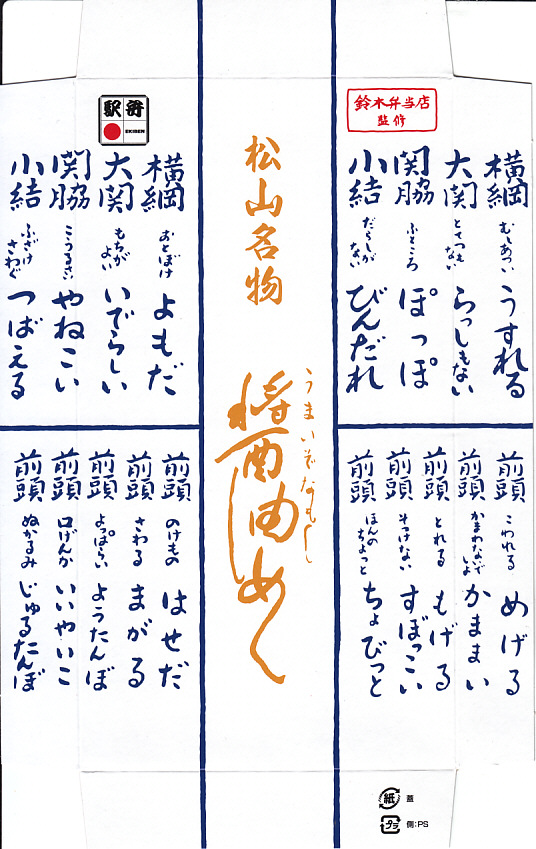 鈴木弁当店
監修
駅弁
EKIBEN
松山名物
うまいぞなもし
醤油めし
横綱 むしあつい うすれる
大関 とてつもない らっしもない
関脇 ふところ ぽっぽ
小結 だらしがない びんだれ
横綱 おとぼけ よもだ
大関 もちがよい いでらしい
関脇 こうるさい やねこい
小結 ふざけさわぐ つばえる
前頭 こわれる めげる
前頭 かまわないでしょ かままい
前頭 とれる もげる
前頭 そっけない すぼっこい
前頭 ほんのちょっと ちょびっと
前頭 のけもの はせだ
前頭 さわる まがる
前頭 よっぱらい ようたんぼ
前頭 口げんか いいやいこ
前頭 ぬかるみ じゅるたんぼ
紙 蓋
プラ 側:PS